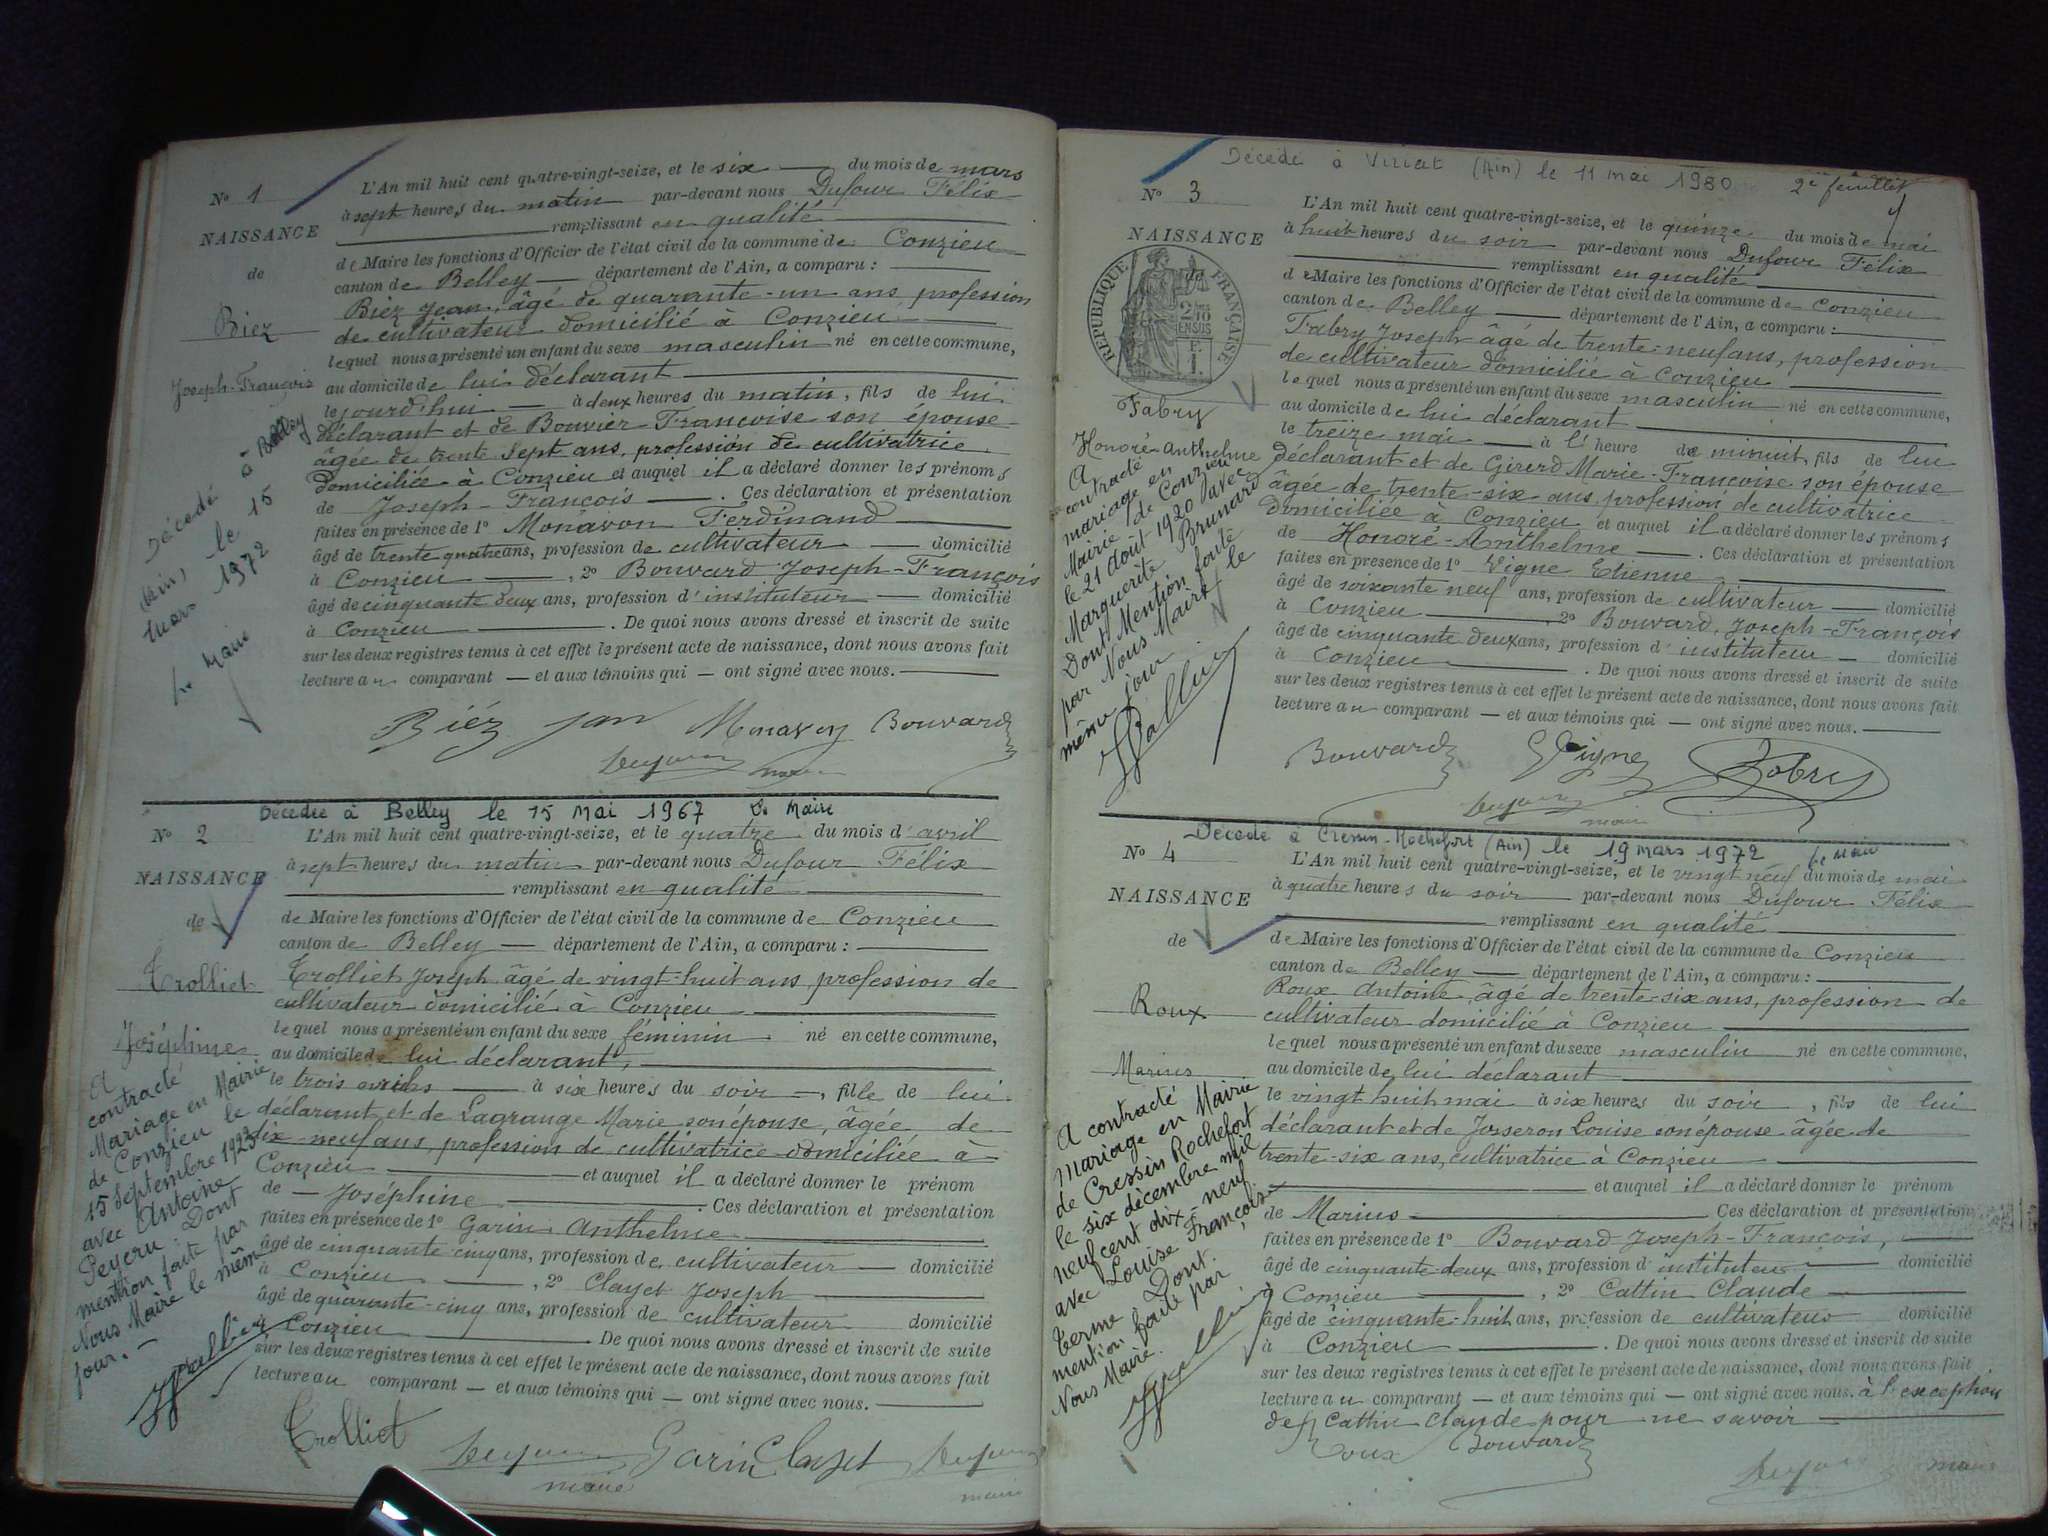 No 1
NAISSANCE
de
Biez
Joseph-François
Décédé à Belley
(Ain) le 15
Mars 1972
Le Maire
L'An mil huit cent quatre-vingt-seize, et le six du mois de mars
à sept heures du matin par-devant nous Dufour Félix
remplissant en qualité
de Maire les fonctions d'Officier de l'état civil de la commune de Conzieu
canton de Belley département de l'Ain, a comparu :
Biez Jean, âgé de quarante-un ans, profession
de cultivateur domicilié à Conzieu
lequel nous a présenté un enfant du sexe masculin né en cette commune,
au domicile de lui déclarant
le jourd'hui à deux heures du matin, fils de lui
déclarant et de Bouvier Françoise son épouse
âgée de trente sept ans, profession de cultivatrice
domiciliée à Conzieu et auquel il a déclaré donner les prénoms
de Joseph-François . Ces déclaration et présentation
faites en présence de 1o Monavon Ferdinand
âgé de trente quatre ans, profession de cultivateur domicilié
à Conzieu , 2o Bouvard Joseph-François
âgé de cinquante deux ans, profession d'instituteur domicilié
à Conzieu . De quoi nous avons dressé et inscrit de suite
sur les deux registres tenus à cet effet le présent acte de naissance, dont nous avons fait
lecture au comparant — et aux témoins qui — ont signé avec nous.
Biéz jan Monavon Bouvard
Dufour maire
Décédée à Belley le 15 Mai 1967 Le Maire
No 2
NAISSANCE
de
Trolliet
Joséphine
A
contracté
Mariage en Mairie
de Conzieu le
15 Septembre 1923
avec Antoine
Peyeru. Dont
mention faite par
Nous Maire le même
jour. —
L'An mil huit cent quatre-vingt-seize, et le quatre du mois d'avril
à sept heures du matin par-devant nous Dufour Félix
remplissant en qualité
de Maire les fonctions d'Officier de l'état civil de la commune de Conzieu
canton de Belley — département de l'Ain, a comparu :
Trolliet Joseph âgé de vingt-huit ans, profession de
cultivateur domicilié à Conzieu
lequel nous a présenté un enfant du sexe féminin né en cette commune,
au domicile de lui déclarant,
le trois avril à six heures du soir, fille de lui
déclarant et de Lagrange Marie son épouse, âgée de
dix-neuf ans, profession de cultivatrice domiciliée à
Conzieu et auquel il a déclaré donner le prénom
de — Joséphine . Ces déclaration et présentation
faites en présence de 1o Garin Anthelme
âgé de cinquante cinq ans, profession de cultivateur domicilié
à Conzieu , 2o Clayet Joseph
âgé de quarante-cinq ans, profession de cultivateur domicilié
à Conzieu De quoi nous avons dressé et inscrit de suite
sur les deux registres tenus à cet effet le présent acte de naissance, dont nous avons fait
lecture au comparant — et aux témoins qui — ont signé avec nous.
Trolliet Dufour Garin Clayet Dufour
maire maire
Décédé à Viriat (Ain) le 11 mai 1980
2e feuillet
No 3
NAISSANCE
de
RÉPUBLIQUE FRANÇAISE
Fabry
Honoré-Anthelme
A
contracté
mariage en
Mairie de Conzieu
le 21 Août 1920 avec
Marguerite Brunard
Dont Mention faite
par Nous Maire le
même jour
L'An mil huit cent quatre-vingt-seize, et le quinze du mois de mai
à huit heures du soir par-devant nous Dufour Félix
remplissant en qualité
de Maire les fonctions d'Officier de l'état civil de la commune de Conzieu
canton de Belley département de l'Ain, a comparu :
Fabry Joseph âgé de trente-neuf ans, profession
de cultivateur domicilié à Conzieu
lequel nous a présenté un enfant du sexe masculin né en cette commune,
au domicile de lui déclarant
le treize mai à l'heure de minuit, fils de lui
déclarant et de Girerd Marie-Françoise son épouse
âgée de trente-six ans, profession de cultivatrice
domiciliée à Conzieu et auquel il a déclaré donner les prénoms
de Honoré-Anthelme . Ces déclaration et présentation
faites en présence de 1o Vigne Etienne
âgé de soixante neuf ans, profession de cultivateur domicilié
à Conzieu , 2o Bouvard, Joseph-François
âgé de cinquante deux ans, profession d'instituteur — domicilié
à Conzieu . De quoi nous avons dressé et inscrit de suite
sur les deux registres tenus à cet effet le présent acte de naissance, dont nous avons fait
lecture au comparant — et aux témoins qui — ont signé avec nous.
Bouvard Vigne Fabry
Dufour maire
Décédé à Cressin-Rochefort (Ain) le 19 mars 1972 Le Maire
No 4
NAISSANCE
de
Roux
Marius
A contracté
Mariage en Mairie
de Cressin Rochefort
le six décembre mil
neufcent dix-neuf
avec Louise Françoise
Terme. Dont
mention faite par
Nous Maire.
L'An mil huit cent quatre-vingt-seize, et le vingt neuf du mois de mai
à quatre heures du soir par-devant nous Dufour Félix
remplissant en qualité
de Maire les fonctions d'Officier de l'état civil de la commune de Conzieu
canton de Belley — département de l'Ain, a comparu :
Roux Antoine âgé de trente-six ans, profession de
cultivateur domicilié à Conzieu
lequel nous a présenté un enfant du sexe masculin né en cette commune,
au domicile de lui déclarant
le vingt huit mai à six heures du soir, fils de lui
déclarant et de Josseron Louise son épouse âgée de
trente-six ans, cultivatrice à Conzieu
et auquel il a déclaré donner le prénom
de Marius Ces déclaration et présentation
faites en présence de 1o Bouvard Joseph-François,
âgé de cinquante deux ans, profession d'instituteur domicilié
à Conzieu , 2o Cattin Claude
âgé de cinquante-huit ans, profession de cultivateur domicilié
à Conzieu . De quoi nous avons dressé et inscrit de suite
sur les deux registres tenus à cet effet le présent acte de naissance, dont nous avons fait
lecture au comparant — et aux témoins qui — ont signé avec nous. à l'exception
de Cattin Claude pour ne savoir
Roux Bouvard
Dufour maire